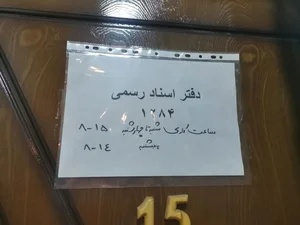 دفتر اسناد رسمی
۱۲۸۴
ساعت کاری شنبه تا چهارشنبه ۸-۱۵
پنجشنبه ۸-۱۴
15